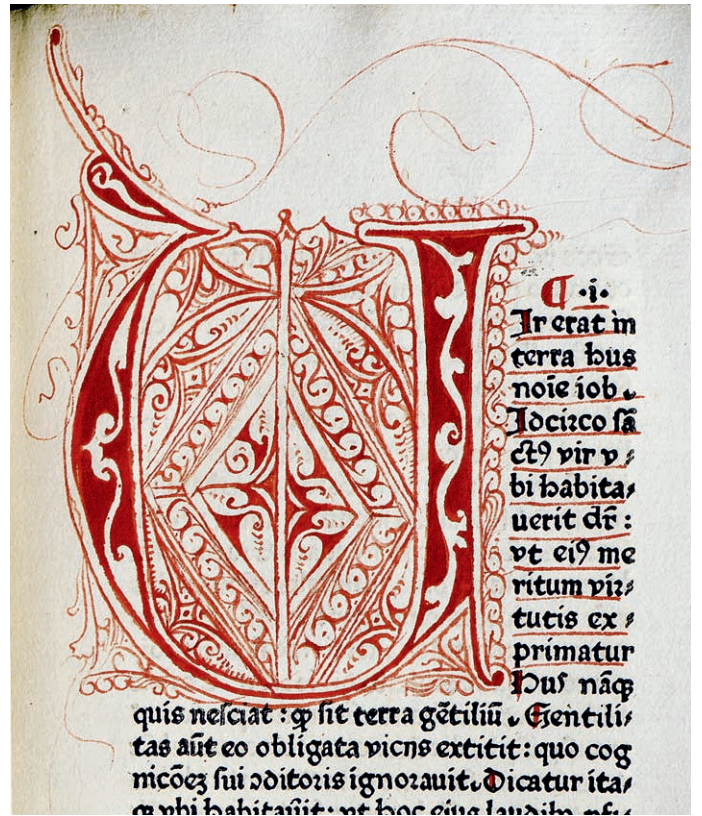 U
¶ ·i·
Ir erat in
terra hus
noīe iob.
Idcirco sā
ctꝰ vir v⸗
bi habita⸗
uerit dr̄ :
vt eiꝰ me
ritum vir⸗
tutis ex⸗
primatur
Hus nāqꝫ
quis nesciat : ꝙ sit terra gētiliū. Gentili⸗
tas aūt eo obligata vicijs extitit : quo cog
nicōeꝫ sui ↄditoris ignorauit. Dicatur ita⸗
qꝫ vbi habitauit : vt hoc eius